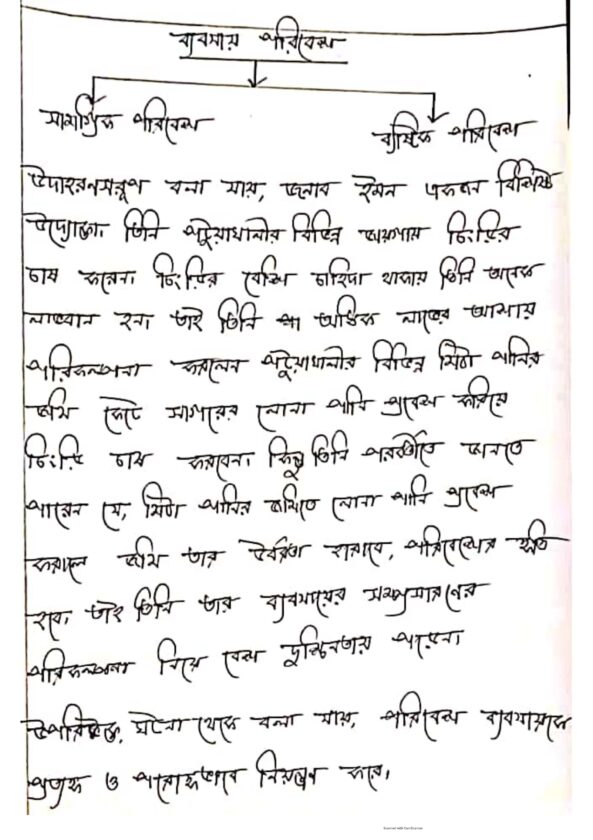 ব্যবসায় পরিবেশ
সামগ্রিক পরিবেশ
ব্যষ্টিক পরিবেশ
উদাহরনস্বরূপ বলা যায়, জনাব ইমন একজন বিশিষ্ট
উদ্যোক্তা। তিনি পটুয়াখালীর বিভিন্ন জায়গায় চিংড়ির
চাষ করেন। চিংড়ির বেশি চাহিদা থাকায় তিনি অনেক
লাভবান হন। তাই তিনি অধিক লাভের আশায়
পরিকল্পনা করলেন পটুয়াখালীর বিভিন্ন মিঠা পানির
জমি কেটে সাগরের লোনা পানি প্রবেশ করিয়ে
চিংড়ি চাষ করবেন। কিন্তু তিনি পরবর্তীতে জানতে
পারেন যে, মিঠা পানির জমিতে লোনা পানি প্রবেশ
করালে জমি তার উর্বরতা হারাবে, পরিবেশের ক্ষতি
হবে। তাই তিনি তার ব্যবসায়ের সম্প্রসারণের
পরিকল্পনা নিয়ে বেশ দুশ্চিন্তায় পড়েন।
উপরিউক্ত, ঘটনা থেকে বলা যায়, পরিবেশ ব্যবসায়কে
প্রত্যক্ষ ও পরোক্ষভাবে নিয়ন্ত্রণ করে।